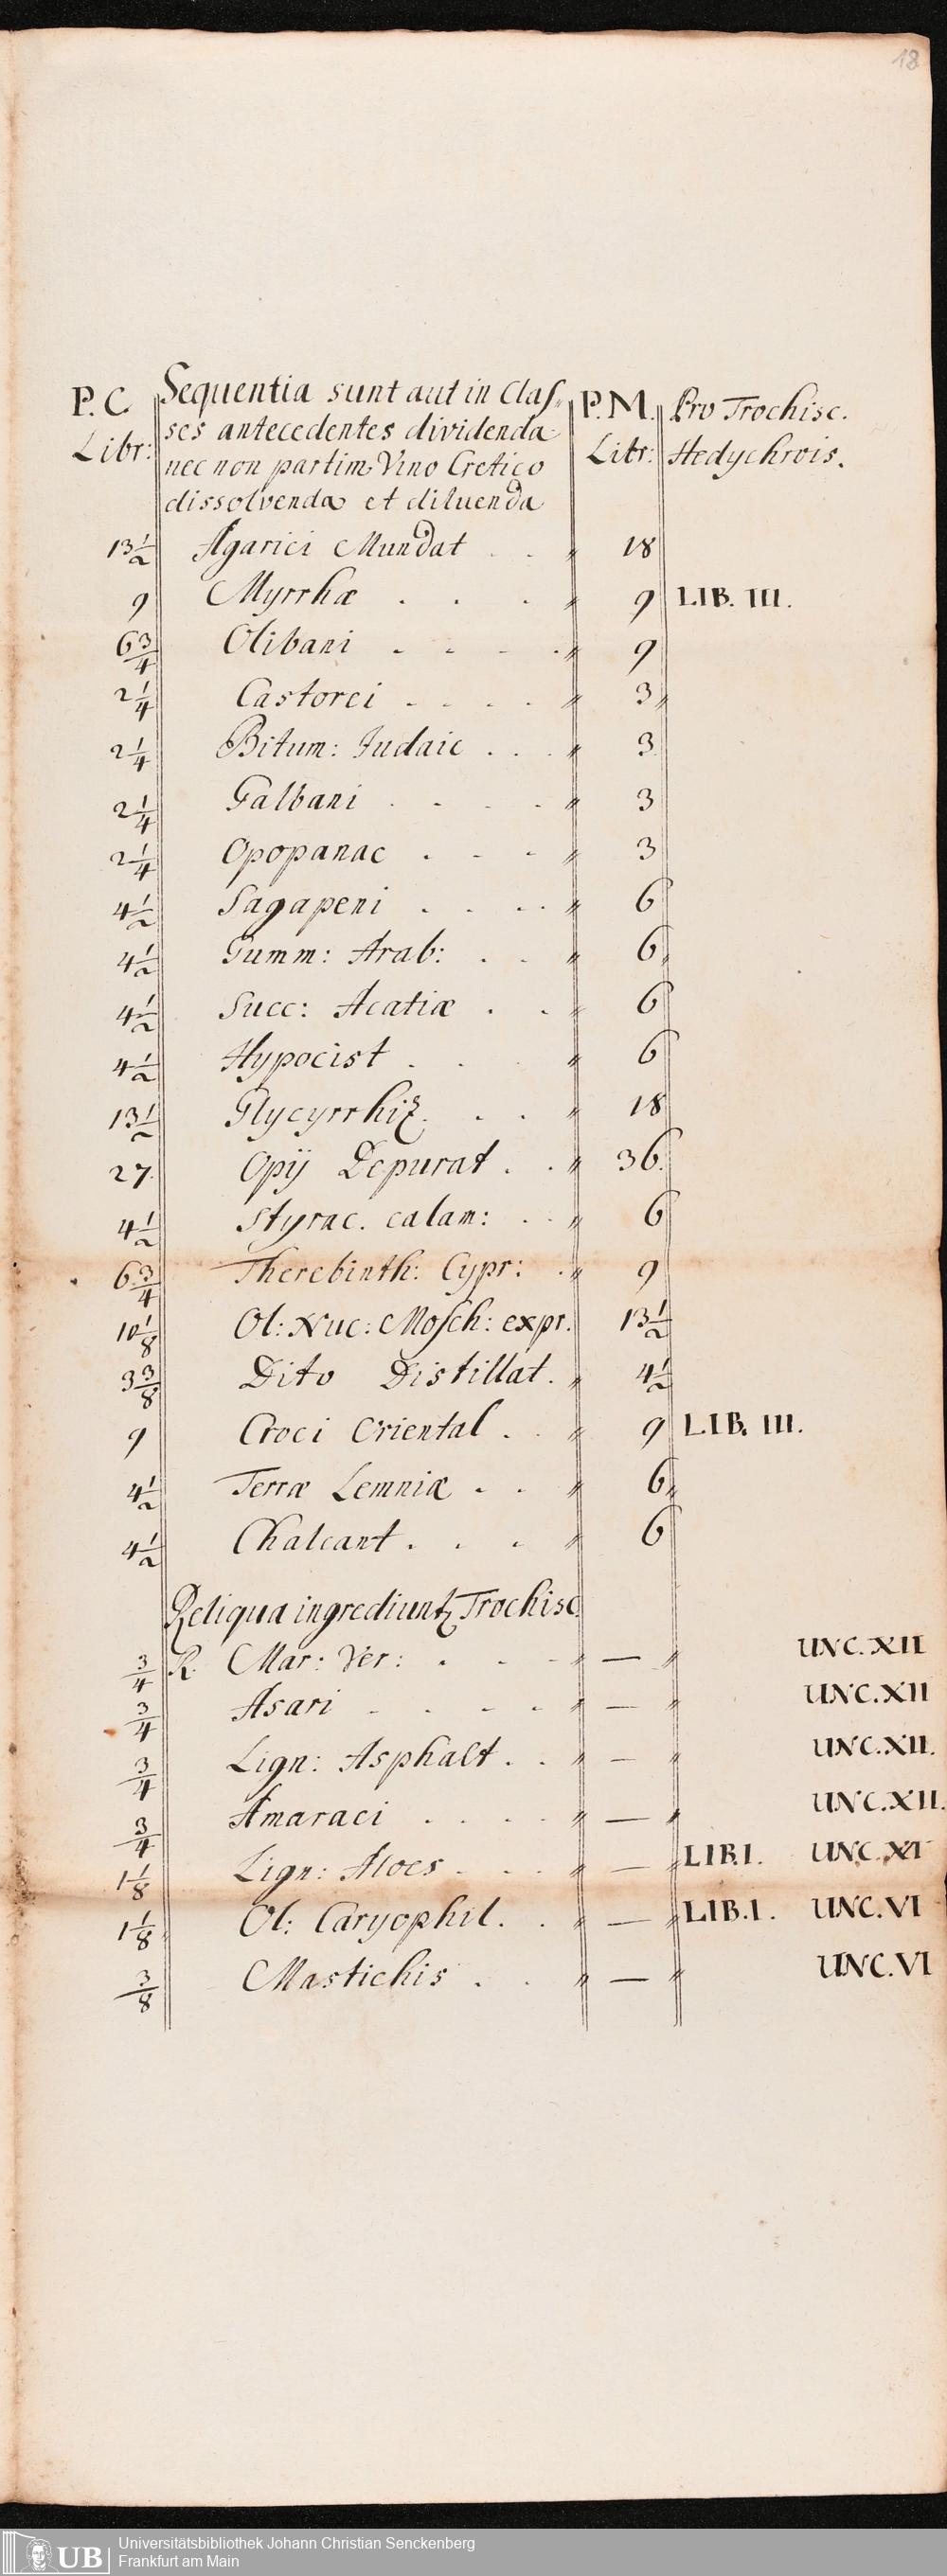 18
P. C. Sequentia sunt aut in Clas- P. M. Pro Trochisc.
Libr: ses antecedentes dividenda Libr: Hedychrois.
nec non partim Vino Cretico
dissolvenda et diluenda
13 1/2 Agarici Mundat . . 18
9 Myrrhæ . . . 9 LIB. III.
6 3/4 Olibani - - - . 9
2 1/4 Castorei . - . . 3
2 1/4 Bitum: Judaic . . . 3
2 1/4 Galbani . - . - 3
2 1/4 Opopanac . - - 3
4 1/2 Sagapeni . . . . 6
4 1/2 Gumm: Arab: . . 6
4 1/2 Succ: Acatiæ . . 6
4 1/2 Hypocist . . . 6
13 1/2 Glycyrrhiz. . . 18
27. Opij Depurat . . 36.
4 1/2 Styrac. calam: . . 6
6 3/4 Therebinth: Cypr: . 9
10 1/8 Ol: Nuc: Mosch: expr. 13 1/2
3 3/8 Dito Distillat. 4 1/2
9 Croci Oriental . . 9 LIB. III.
4 1/2 Terræ Lemniæ . . 6
4 1/2 Chalcant . . . 6
Reliqua ingrediunt Trochisc.
3/4 R. Mar: Ver: . - - — UNC. XII
3/4 Asari - . . . — UNC. XII
3/4 Lign: Asphalt . . — UNC. XII.
3/4 Amaraci . . . . — UNC. XII.
1 1/8 Lign: Aloes . . . — LIB. I. UNC. XI
1 1/8 Ol: Caryophil. . — LIB. I. UNC. VI
3/8 Mastichis . . — UNC. VI
UB
Universitätsbibliothek Johann Christian Senckenberg
Frankfurt am Main